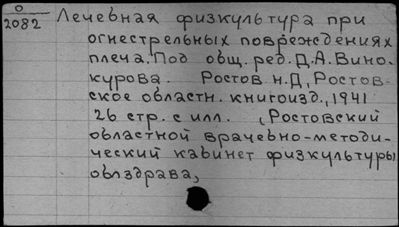 О
2082
Лечебная физкультура при
огнестрельных повреждениях
плеча. Под общ. ред. Д.А. Вино-
курова. Ростов н.Д, Ростов-
ское областн. книгоизд., 1941
26 стр. с илл. (Ростовский
областной врачебно-методи-
ческий кабинет физкультуры
облздрава)